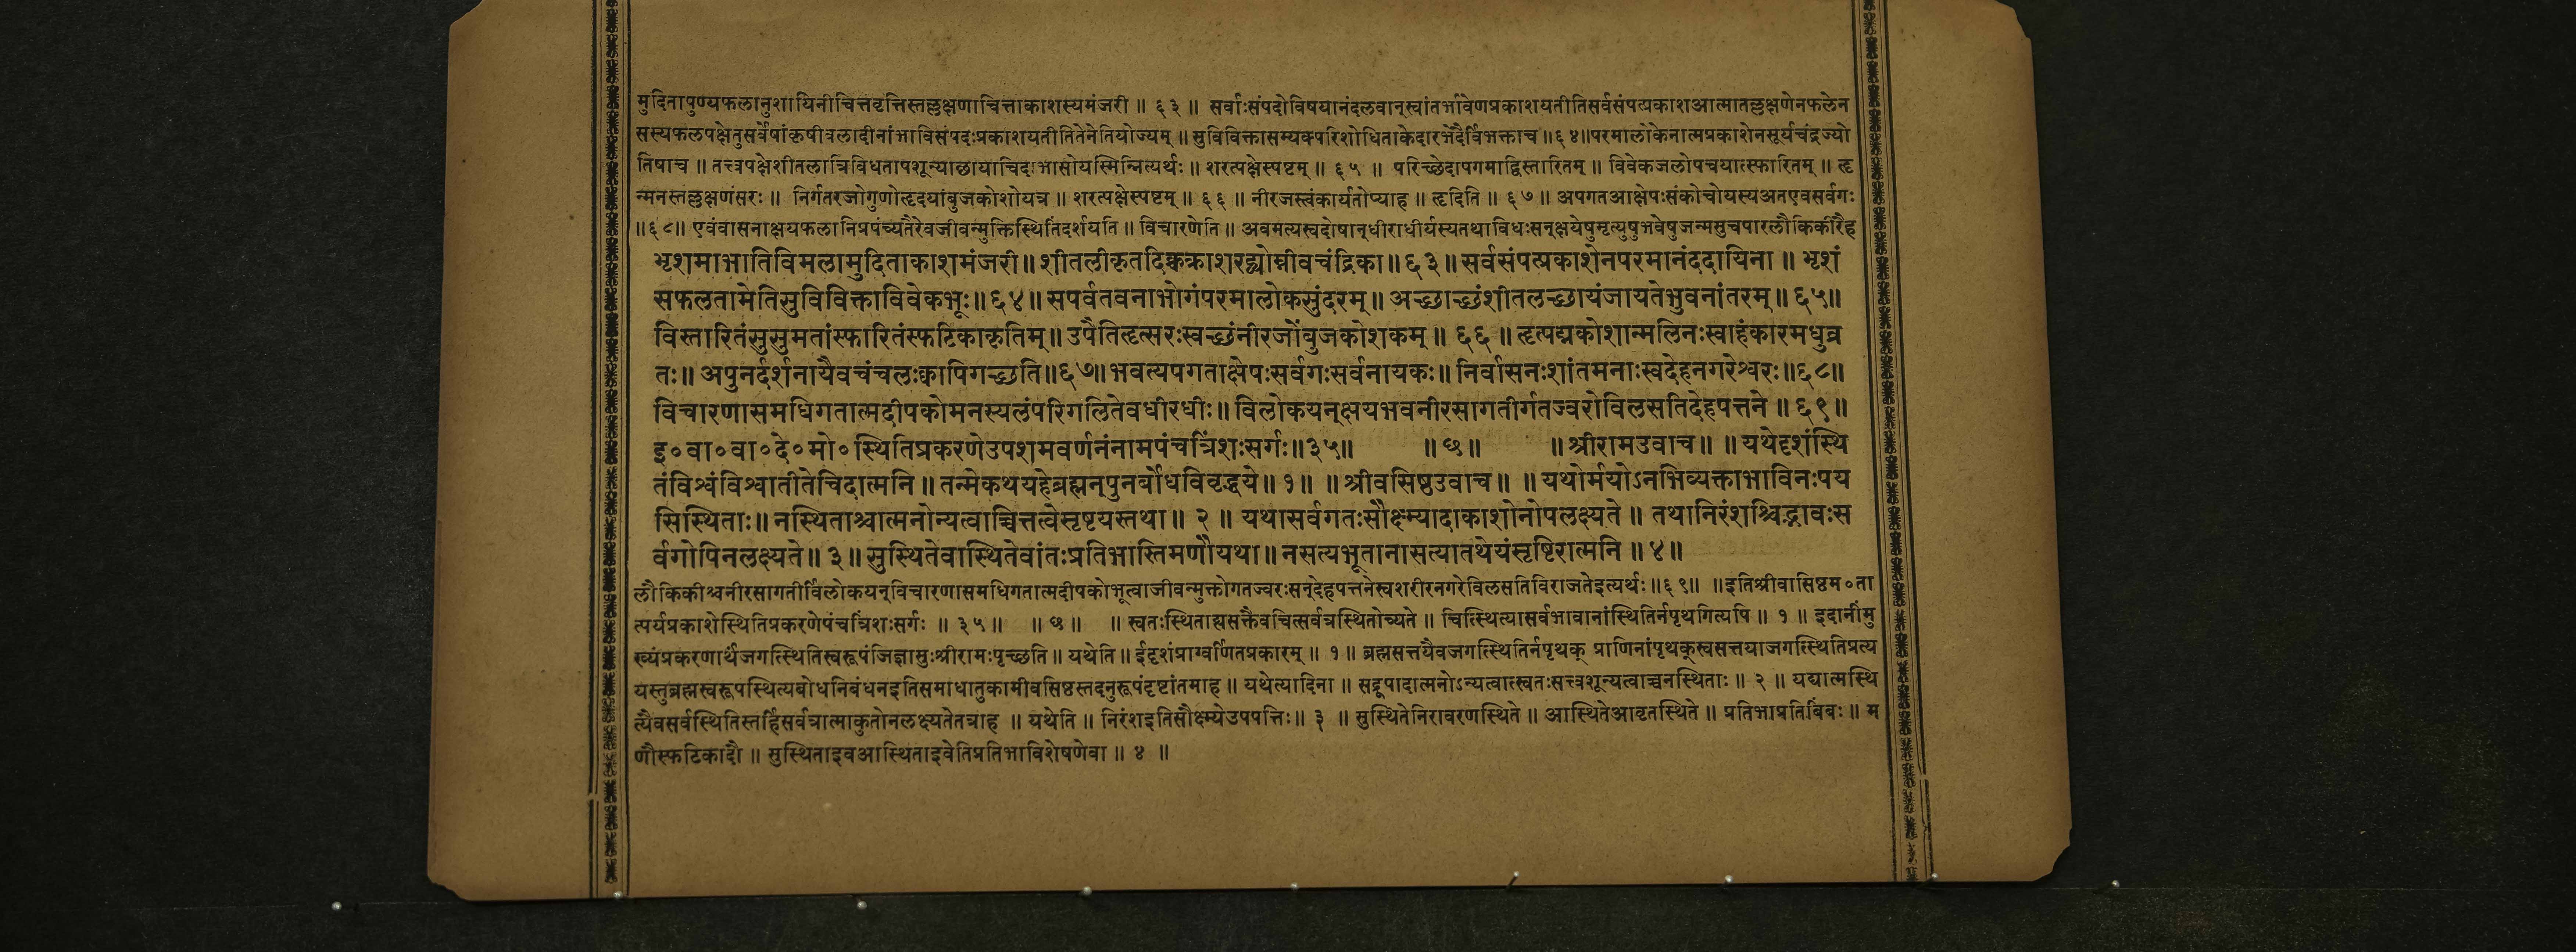 मुदितापुण्यफलानुशायिनीचित्तवृत्तिस्तल्लक्षणाचित्ताकाशस्यमंजरी ॥ ६३ ॥ सर्वाःसंपदोविषयानंदलवान्स्वांतर्भावेणप्रकाशयतीतिसर्वसंपत्प्रकाशआत्मातल्लक्षणेनफलेन
सस्यफलपक्षेतुसर्वेषांकृषीवलादीनांभाविसंपदःप्रकाशयतीतितेनेतियोज्यम् ॥ सुविविक्तासम्यक्परिशोधिताकेदारभेदैर्विभक्ताच ॥६४॥परमालोकेनात्मप्रकाशेनसूर्यचंद्रज्यो
तिषाच ॥ तत्त्वपक्षेशीतलात्रिविधतापशून्याछायाचिदाभासोयस्मिन्नित्यर्थः ॥ शरत्पक्षेस्पष्टम् ॥ ६५ ॥ परिच्छेदापगमाद्विस्तारितम् ॥ विवेकजलोपचयात्स्फारितम् ॥ हृ
न्मनस्तल्लक्षणंसरः ॥ निर्गतरजोगुणोहृदयांबुजकोशोयत्र ॥ शरत्पक्षेस्पष्टम् ॥ ६६ ॥ नीरजस्त्वंकार्यतोप्याह ॥ हृदिति ॥ ६७ ॥ अपगतआक्षेपःसंकोचोयस्यअतएवसर्वगः
॥६८॥ एवंवासनाक्षयफलानिप्रपंच्यतैरेवजीवन्मुक्तिस्थितिंदर्शयति ॥ विचारणेति ॥ अवमत्यस्वदोषान्धीराधीर्यस्यतथाविधःसन्क्षयेषुमृत्युषुभवेषुजन्मसुचपारलौकिकीरैह
भृशमाभातिविमलामुदिताकाशमंजरी॥ शीतलीकृतदिक्चक्राशरद्व्योम्नीवचंद्रिका॥६३॥ सर्वसंपत्प्रकाशेनपरमानंददायिना ॥ भृशं
सफलतामेतिसुविविक्ताविवेकभूः॥६४॥ सपर्वतवनाभोगंपरमालोकसुंदरम्॥ अच्छाच्छंशीतलच्छायंजायतेभुवनांतरम्॥ ६५॥
विस्तारितंसुसुमतांस्फारितंस्फटिकाकृतिम्॥ उपैतिहृत्सरःस्वच्छंनीरजोंबुजकोशकम् ॥ ६६ ॥ हृत्पद्मकोशान्मलिनःस्वाहंकारमधुव्र
तः॥ अपुनर्दर्शनायैवचंचलःक्वापिगच्छति॥६७॥ भवत्यपगताक्षेपःसर्वगःसर्वनायकः॥ निर्वासनःशांतमनाःस्वदेहनगरेश्वरः॥६८॥
विचारणासमधिगतात्मदीपकोमनस्यलंपरिगलितेवधीरधीः॥ विलोकयन्क्षयभवनीरसागतीर्गतज्वरोविलसतिदेहपत्तने ॥ ६९॥
इ॰वा॰वा॰दे॰मो॰ स्थितिप्रकरणेउपशमवर्णनंनामपंचत्रिंशःसर्गः॥३५॥ ॥ छ॥ ॥ श्रीरामउवाच॥ ॥ यथेदृशंस्थि
तंविश्वंविश्वातीतेचिदात्मनि ॥ तन्मेकथयहेब्रह्मन्पुनर्बोधविवृद्धये॥ १॥ ॥ श्रीवसिष्ठउवाच॥ ॥ यथोर्मयोऽनभिव्यक्ताभाविनःपय
सिस्थिताः॥ नस्थिताश्चात्मनोन्यत्वाच्चित्तत्वेसृष्टयस्तथा॥ २ ॥ यथासर्वगतःसौक्ष्म्यादाकाशोनोपलक्ष्यते ॥ तथानिरंशश्चिद्भावःस
र्वगोपिनलक्ष्यते॥ ३॥ सुस्थितेवास्थितेवांतःप्रतिभास्तिमणौयथा॥ नसत्यभूतानासत्यातथेयंसृष्टिरात्मनि ॥ ४॥
लौकिकीश्चनीरसागतीर्विलोकयन्विचारणासमधिगतात्मदीपकोभूत्वाजीवन्मुक्तोगतज्वरःसन्देहपत्तनेस्वशरीरनगरेविलसतिविराजतेइत्यर्थः॥६९॥ ॥इतिश्रीवासिष्ठम॰ता
त्पर्यप्रकाशेस्थितिप्रकरणेपंचत्रिंशःसर्गः ॥ ३५॥ ॥ छ॥ ॥ स्वतःस्थिताह्यसक्तैवचित्सर्वत्रस्थितोच्यते ॥ चित्स्थित्यासर्वभावानांस्थितिर्नपृथगित्यपि ॥ १ ॥ इदानींमु
ख्यंप्रकरणार्थंजगत्स्थितिस्वरूपंजिज्ञासुःश्रीरामःपृच्छति॥ यथेति॥ ईदृशंप्राग्वर्णितप्रकारम् ॥ १ ॥ ब्रह्मसत्तयैवजगत्स्थितिर्नपृथक् प्राणिनांपृथक्स्वसत्तयाजगत्स्थितिप्रत्य
यस्तुब्रह्मस्वरूपस्थित्यबोधनिबंधनइतिसमाधातुकामोवसिष्ठस्तदनुरूपंदृष्टांतमाह ॥ यथेत्यादिना ॥ सद्रूपादात्मनोऽन्यत्वात्स्वतःसत्त्वशून्यत्वाच्चनस्थिताः ॥ २ ॥ यद्यात्मस्थि
त्यैवसर्वस्थितिस्तर्हिसर्वत्रात्माकुतोनलक्ष्यतेतत्राह ॥ यथेति ॥ निरंशइतिसौक्ष्म्येउपपत्तिः॥ ३ ॥ सुस्थितेनिरावरणस्थिते ॥ आस्थितेआवृतस्थिते ॥ प्रतिभाप्रतिबिंबः ॥ म
णौस्फटिकादौ ॥ सुस्थिताइवआस्थिताइवेतिप्रतिभाविशेषणेवा ॥ ४ ॥